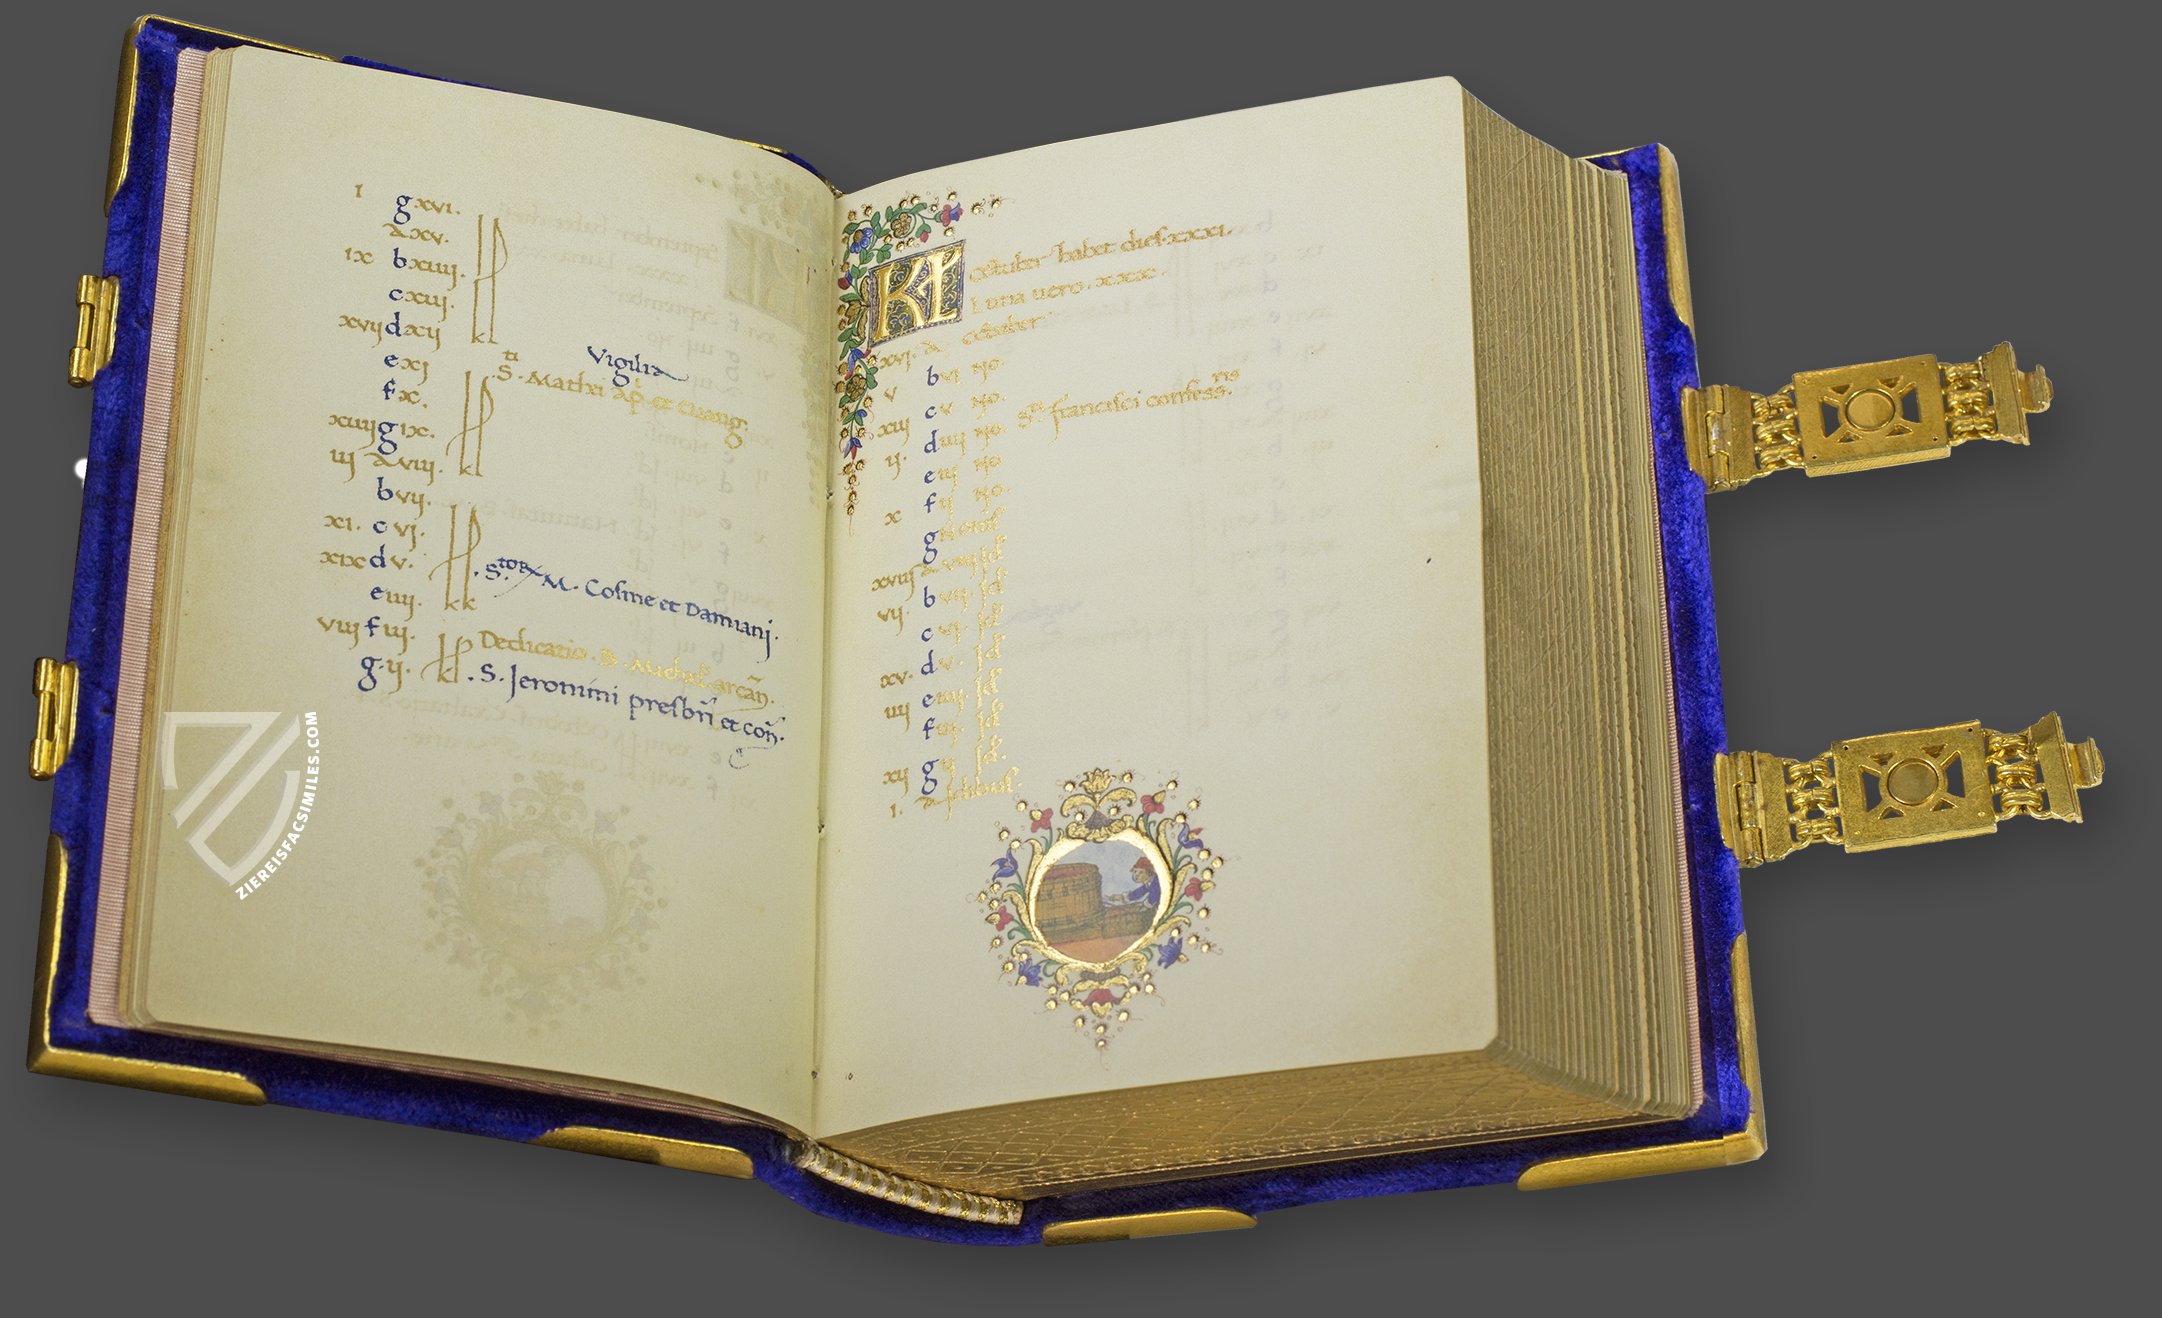 I g xvi.
a xv.
ix b xiiij.
c xiij.
xvij d xij
e xj Vigilia
f x. S.ti Mathei ap. et evang.
xiiij g ix.
iij a viij.
b vij.
xi. c vj.
xix d v. S.tor M. Cosme et Damianj.
e iiij.
viij f iij. Dedicatio. B. Michael. arcan.
g. ij. kl. S. Jeronimi presbri et con.
KL October habet dies. xxxi.
Luna uero. xxx.
xvi. a October
b vi No.
v c v No.
xiij d iiij No. S.ti francisci confess.ris
ij. e iij No
f ij No.
x g Nonas
a viij Id
xviij b vij. Id
vij. c vi. Id
d v. Id
xv. e iiij. Id
iiij f iij. Id
g ij Id.
xij a Idibus.
I.
ZIEREISFACSIMILES.COM